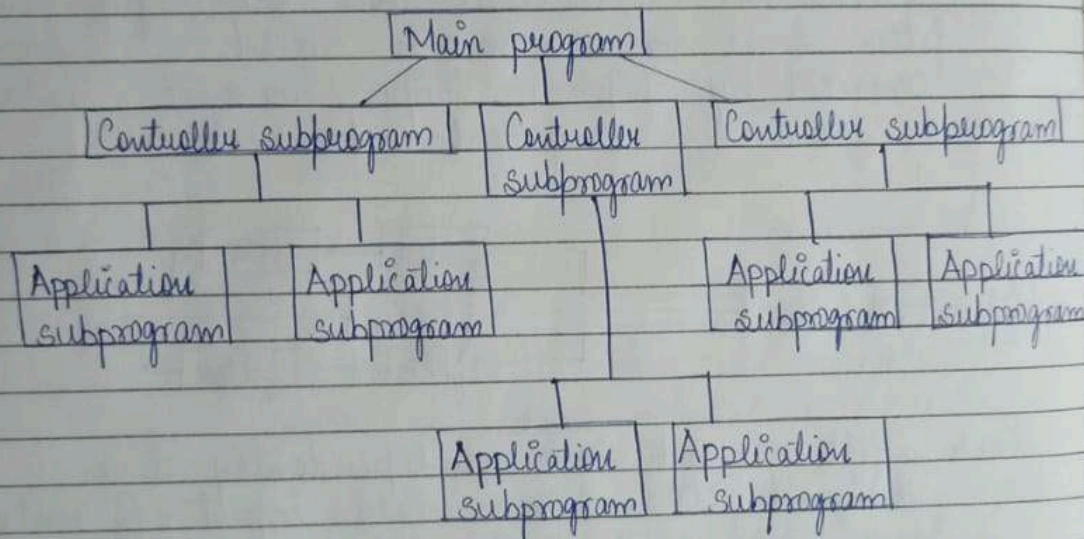 Main program
Controller subprogram
Controller
subprogram
Controller subprogram
Application
subprogram
Application
subprogram
Application
subprogram
Application
subprogram
Application
subprogram
Application
subprogram